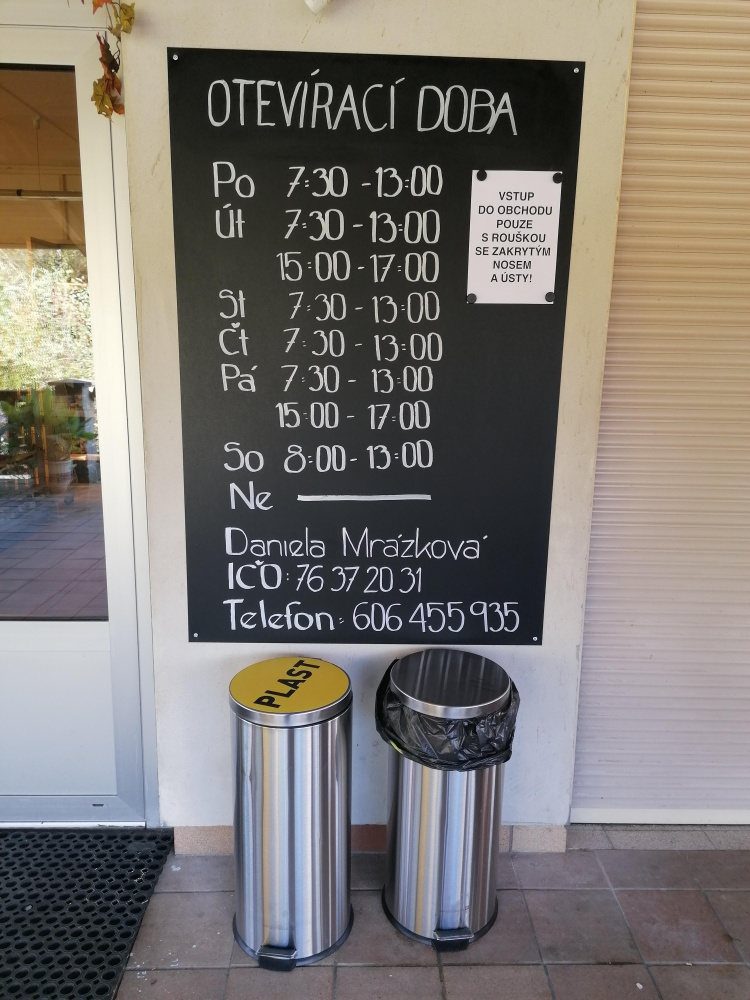 OTEVÍRACÍ DOBA
Po 7:30 - 13:00
Út 7:30 - 13:00
15:00 - 17:00
St 7:30 - 13:00
Čt 7:30 - 13:00
Pá 7:30 - 13:00
15:00 - 17:00
So 8:00 - 13:00
Ne
Daniela Mrázková
IČO: 76 37 20 31
Telefon: 606 455 935
VSTUP
DO OBCHODU
POUZE
S ROUŠKOU
SE ZAKRYTÝM
NOSEM
A ÚSTY!
PLAST